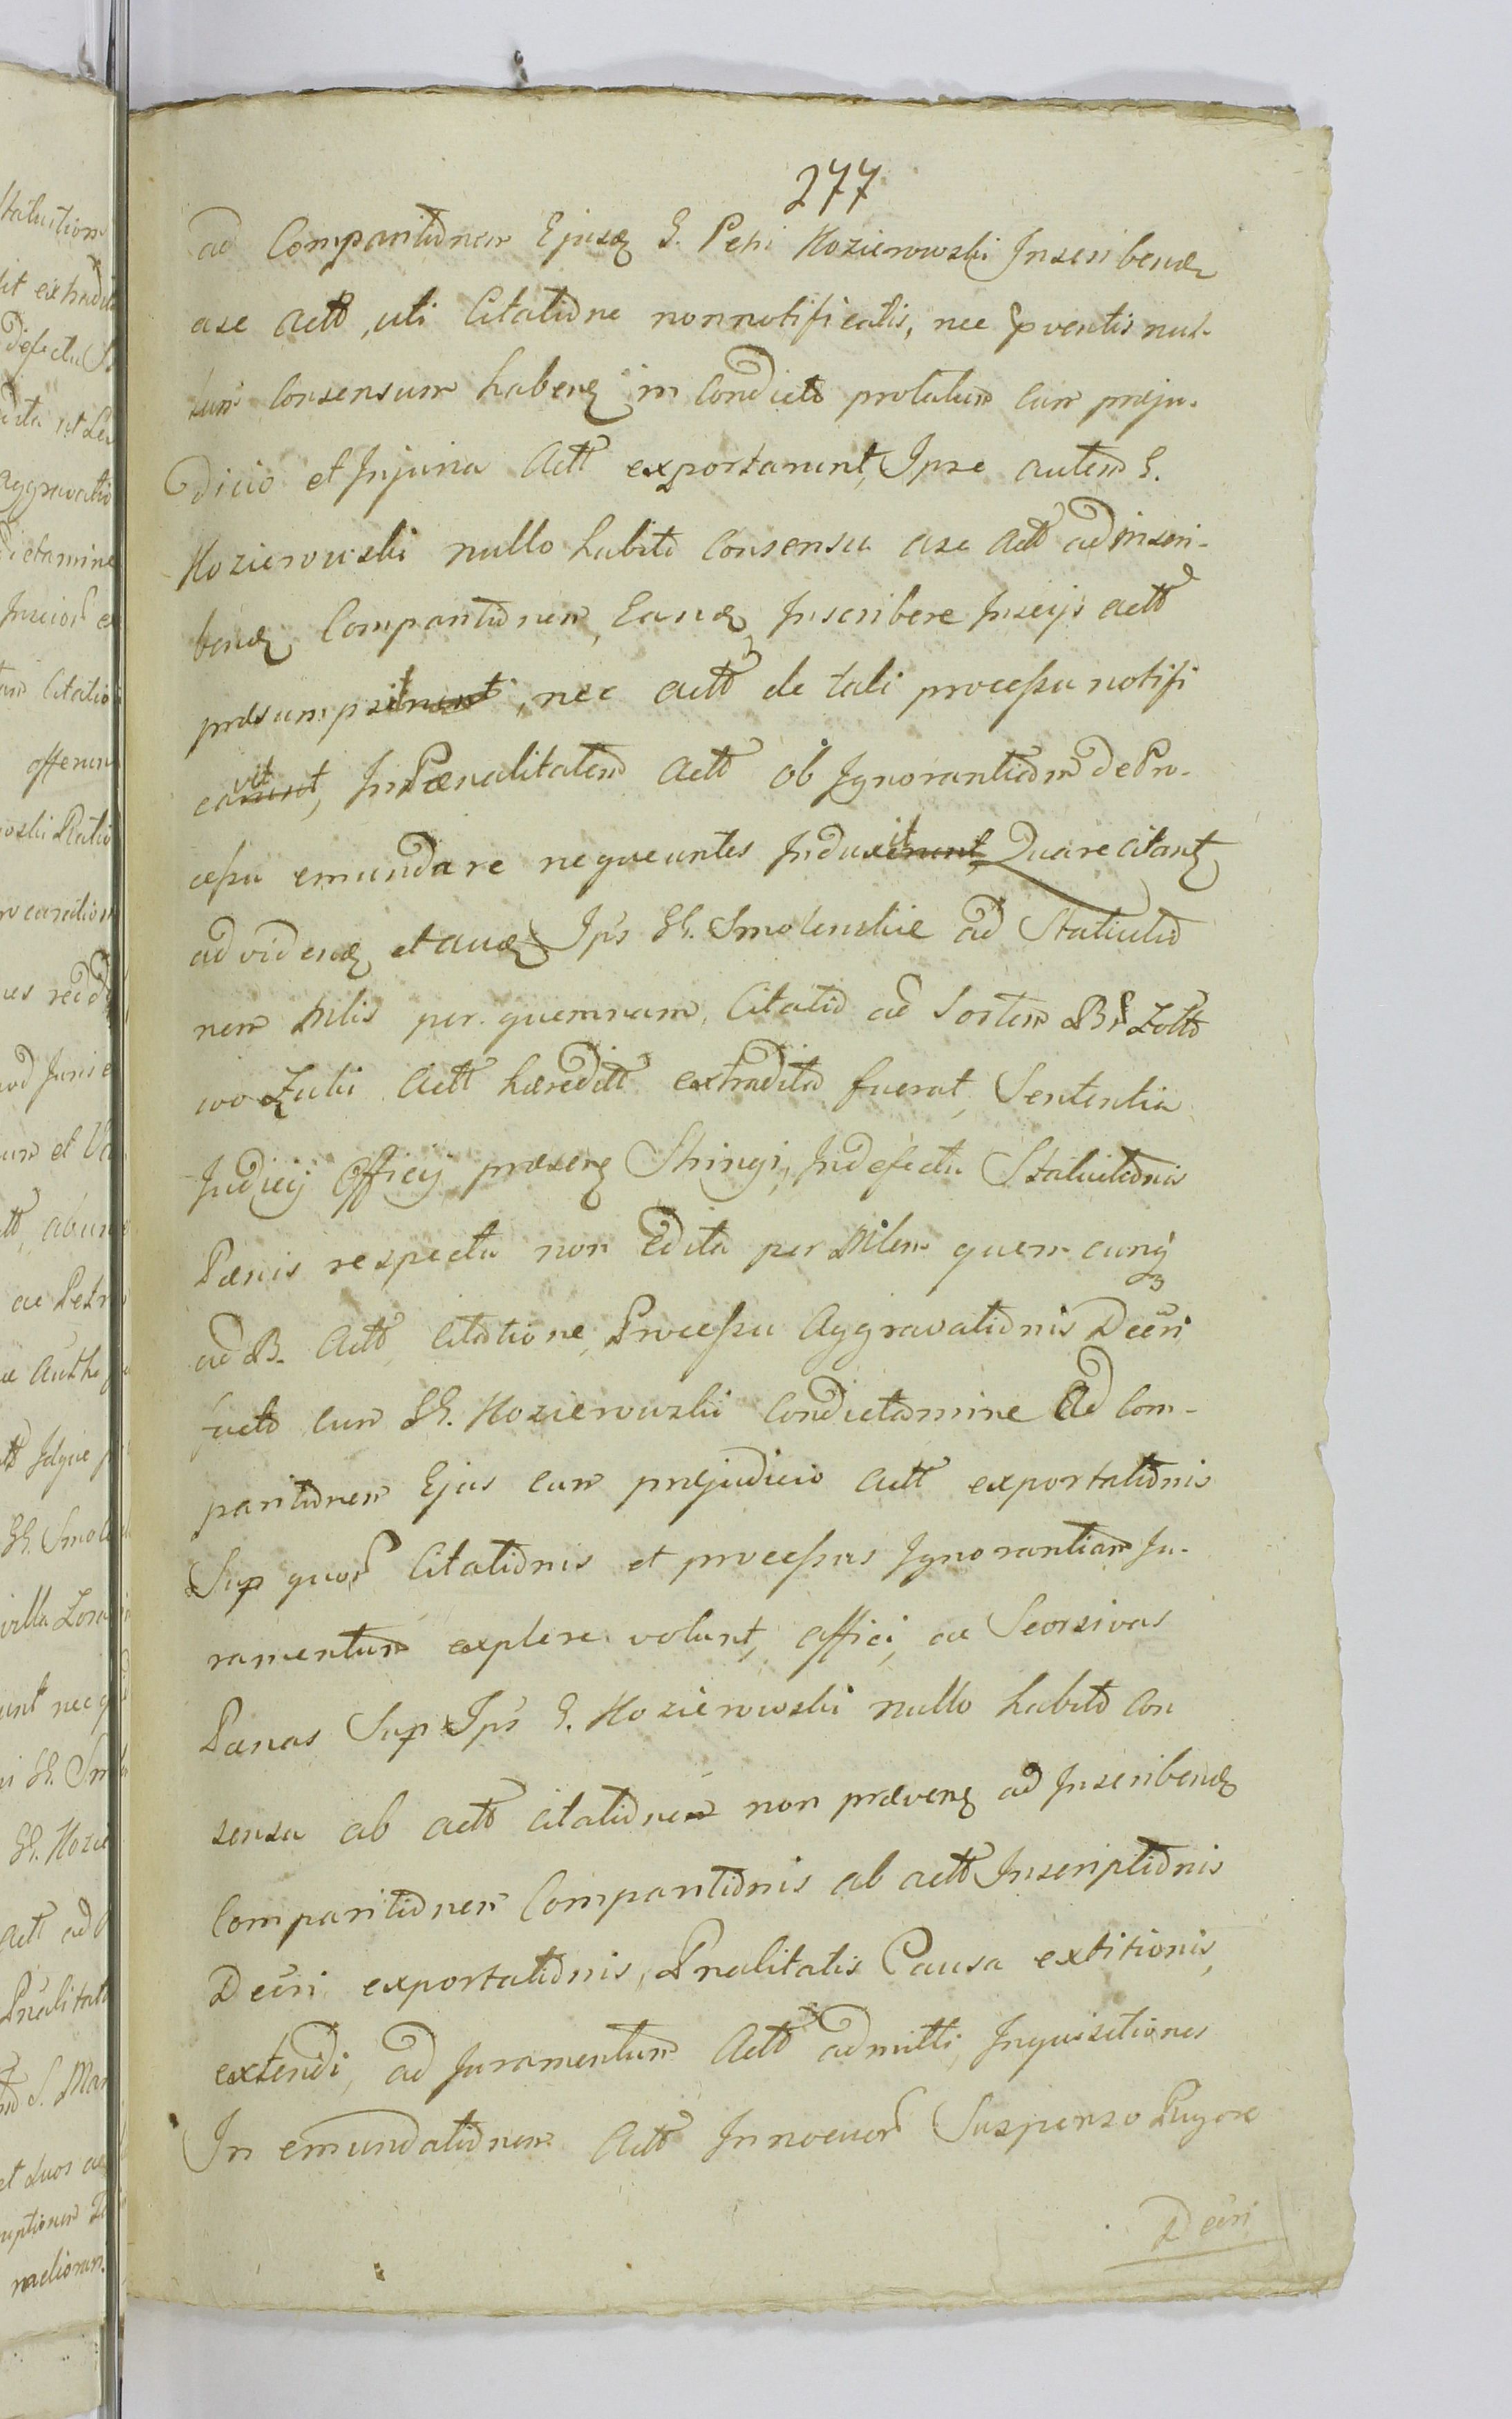 277
ad Comparitionem Ejusq G. Petri Kozierowski Inscribendz
a se actt, uti Citatione non notificatis, nec pventis nul-
lum Consensum habenz in Condicto prolatum cum præju-
dicio et Injuria Actt exportarunt, Ipse autem G.
Kozierowski nullo habito Consensu a se actt ad inscri-
bendz Comparitionem, Eandz Inscribere Inscijs actt
præsumpsit, nec actt de tali processu notifi
cavit, In Pœnalitatem Actt ob Ignorantiam de Pro-
cessu emundare nequeuntes Induxit, Quare citantz
ad videndz et audz Ips GG. Smolenskie ad Statuitio
nem Mlis per quemnam Citatio ad Sortem B. Zotto
wo Zuki Actt hæreditt extradita fuerat, Sententia
Judicij Officij præsenz Stringi, In defectu Statuitionis
Pœnis respectu non Edita per Mlem quemcunq
ad B. Actt, Citatione, Processu Aggravationis Decri
facto cum GG. Kozierowski Condictamine Ad Com-
paritionem Ejus cum præjudicio actt exportationis
Sup quor Citationis et processus Ignorantiam Ju-
ramentum explere volunt, affici, ac Seorsivas
Pœnas Sup Ips G. Kozierowski nullo habito Con
sensu ab actt citationem non prævenz ad Inscribendz
Comparitionem Comparitionis ab actt Inscriptionis
Decri exportationis, Pnalitatis Causa extitionis,
extendi, ad Juramentum Actt admitti, Inquisitiones
In emundationem Actt Innocuor Suspenso Rigore
Decri